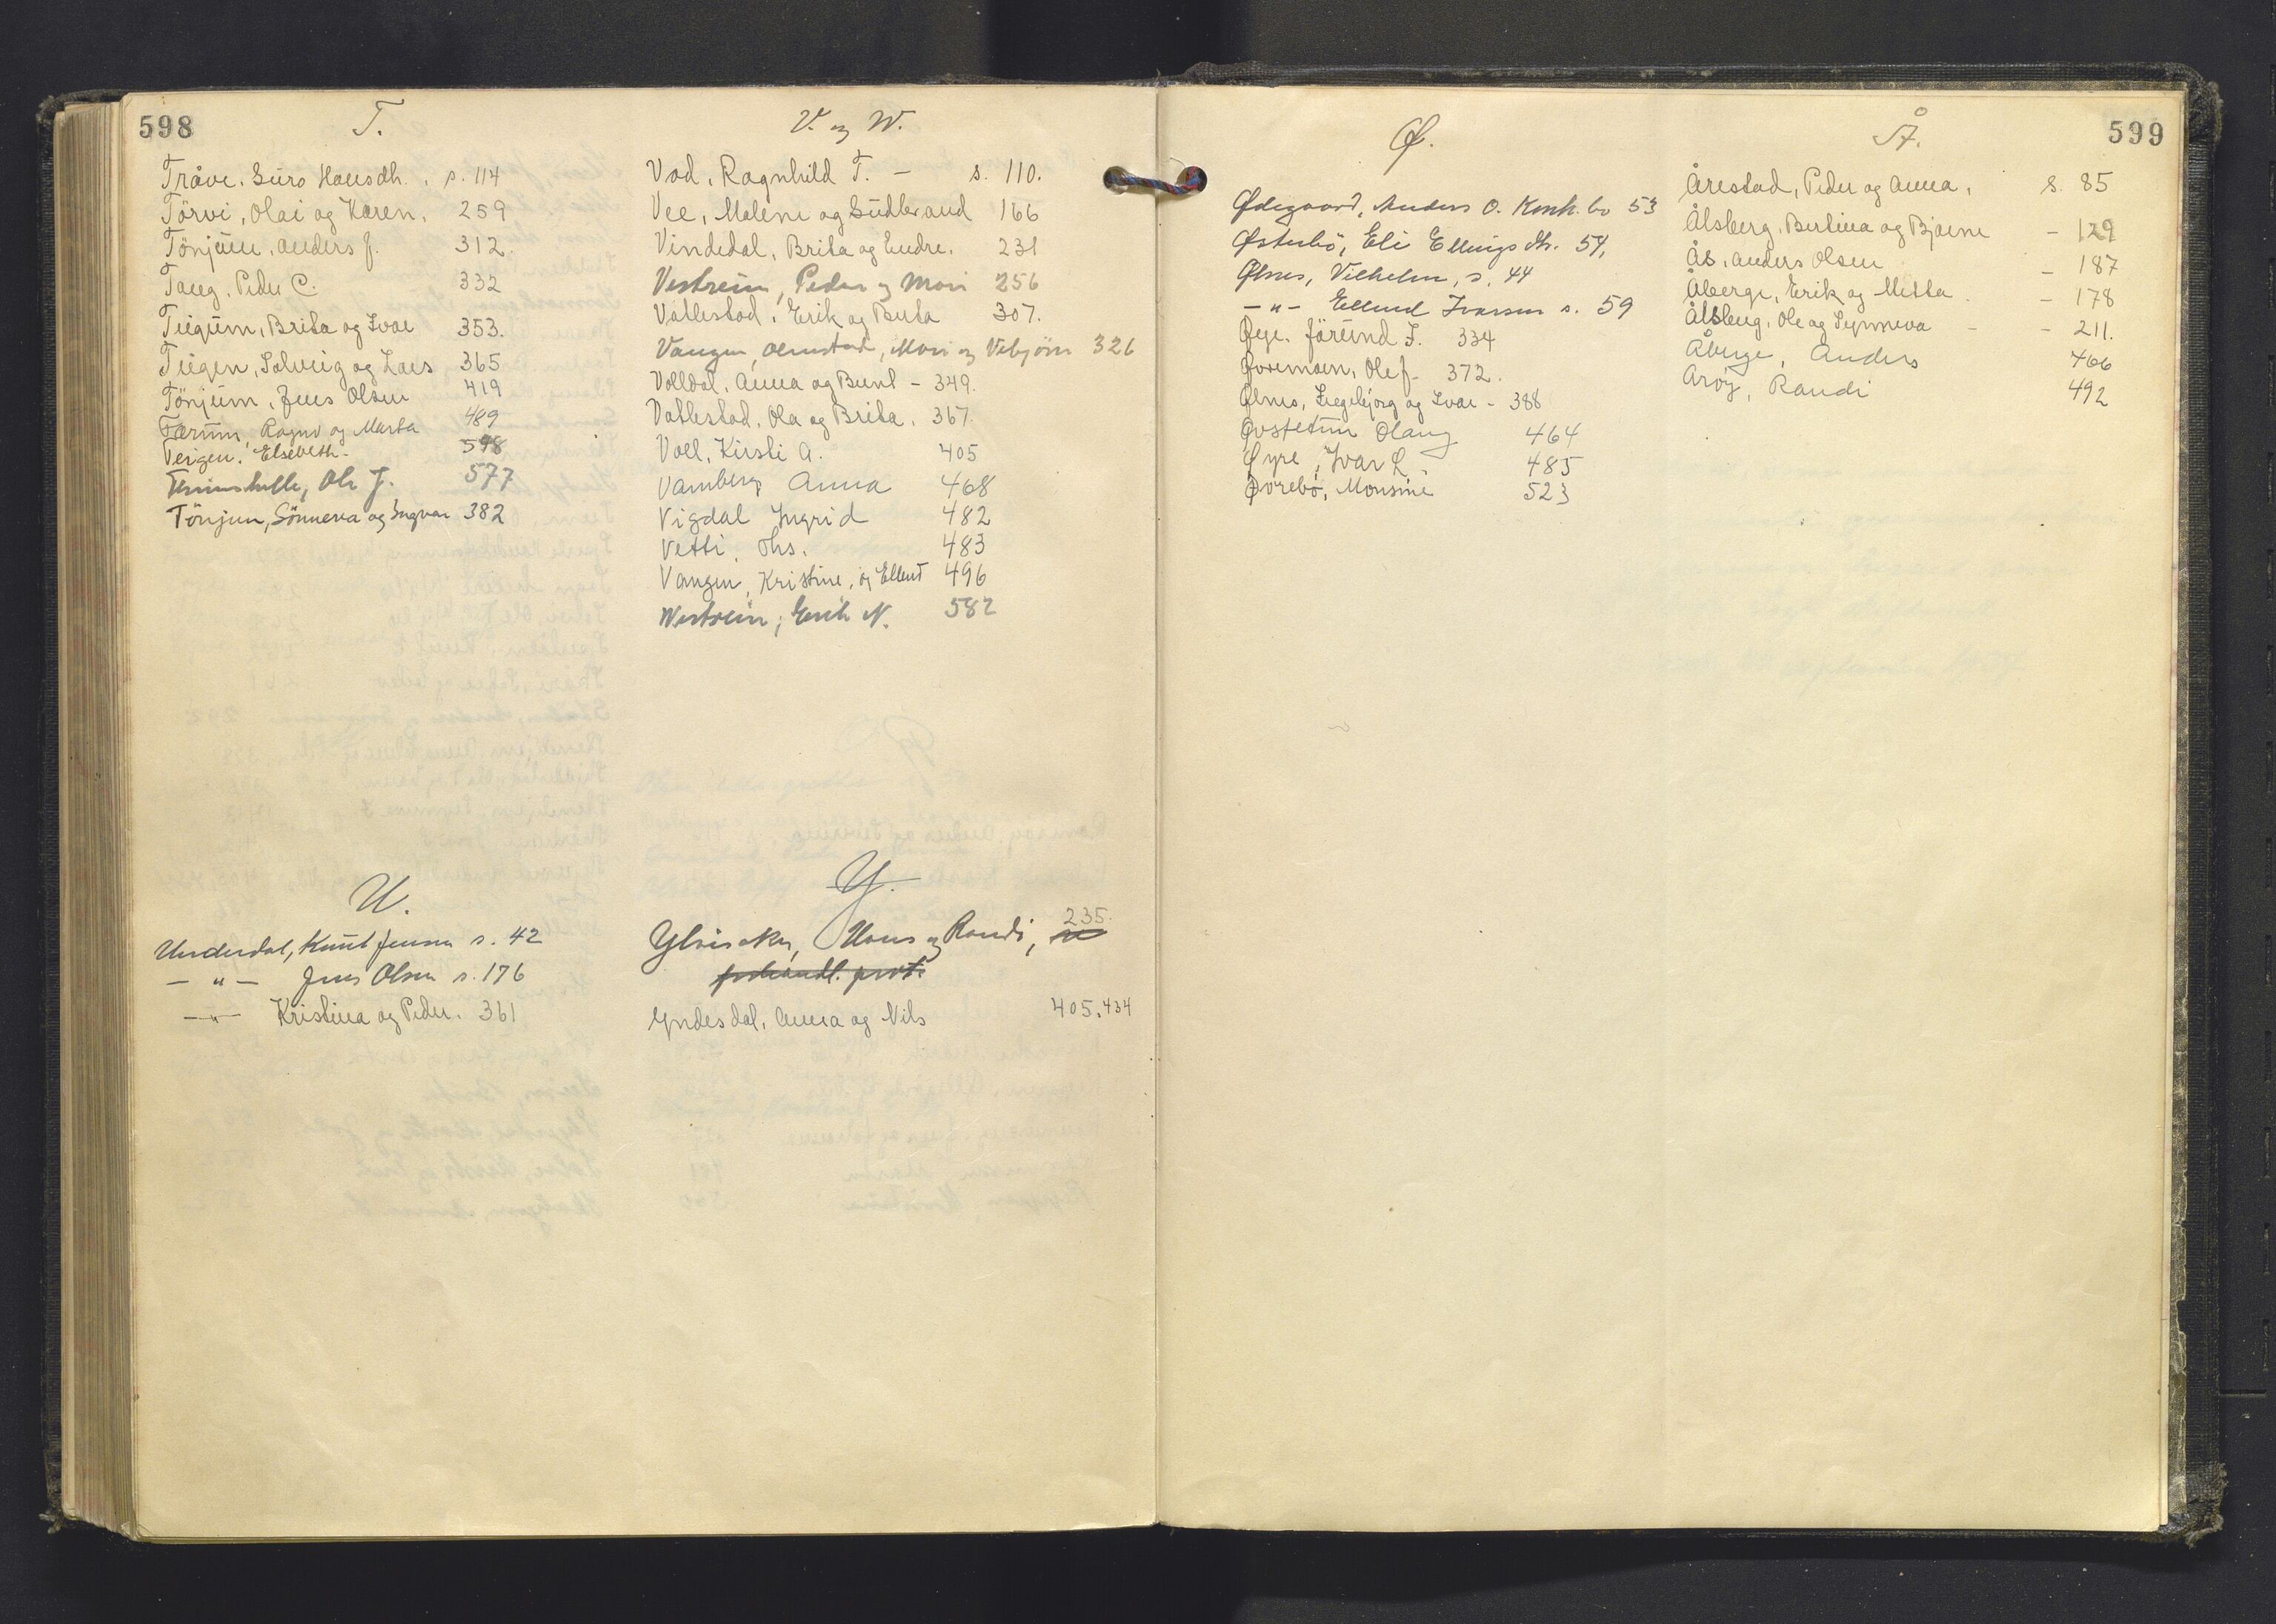 598
T.
Tråve, Guro Hansdh. s. 114
Törvi, Olai og Karen, 259
Tönjum, Anders J. 312.
Taug, Peder C. 332
Teigum, Brita og Ivar 353.
Teigen, Solveig og Lars 365
Tönjum, Jens Olsen 419
Færum, Ragnv og Marta 489
Teigen, Elsebeth. 598
Ole J. 577
Tönjum, Sönneva og Ingvar 382
V. og W.
Vod, Ragnhild T. - s. 110.
Vee, Malene og Gudbrand 166
Vindedal, Brita og Endre. 231
Vestreim, Peder og Mari 256
Vatlestad, Erik og Brita 307.
Vangen, Olmstad, Mari og Vebjörn 326
Volldal, Anna og Bernt - 349.
Vatlestad, Ola og Brita. 367.
Voll, Kirsti A. 405
Vamberg Anna 468
Vigdal Ingrid 482
Vetti, Ths. 483
Vangen, Kristine, og Ellend 496
Westreim, Erik N. 582
U.
Underdal, Knut Jensen s. 42
- " - Jens Olsen s. 176
- " - Kristina og Peder. 361
Y.
Ylvisaker, Hans og Randi, 235.
forhandl. prot.
Yndesdal, Anna og Nils 405.434
599
Ø.
Ødegaard, Anders O. Konk. bo 53
Østerbö, Eli Ellingsdtr. 54,
Ølnes, Vilhelm, s. 44
- " - Ellend Ivarsen s. 59
Øye, Jörund I. 334
Øvremoen, Ole J. 372.
Ølnes, Ingebjörg og Ivar - 388
Øvstetun Olaug 464
Øyre, Ivar L. 485
Øvrebö, Monsine 523
Å.
Årestad, Peder og Anna, s. 85
Ålsberg, Bertina og Bjarne - 129
Ås, Anders Olsen - 187
Åberge, Erik og Metta. - 178
Ålsberg, Ole og Synneva - - 211.
Åberge, Anders 466
Årøy, Randi 492